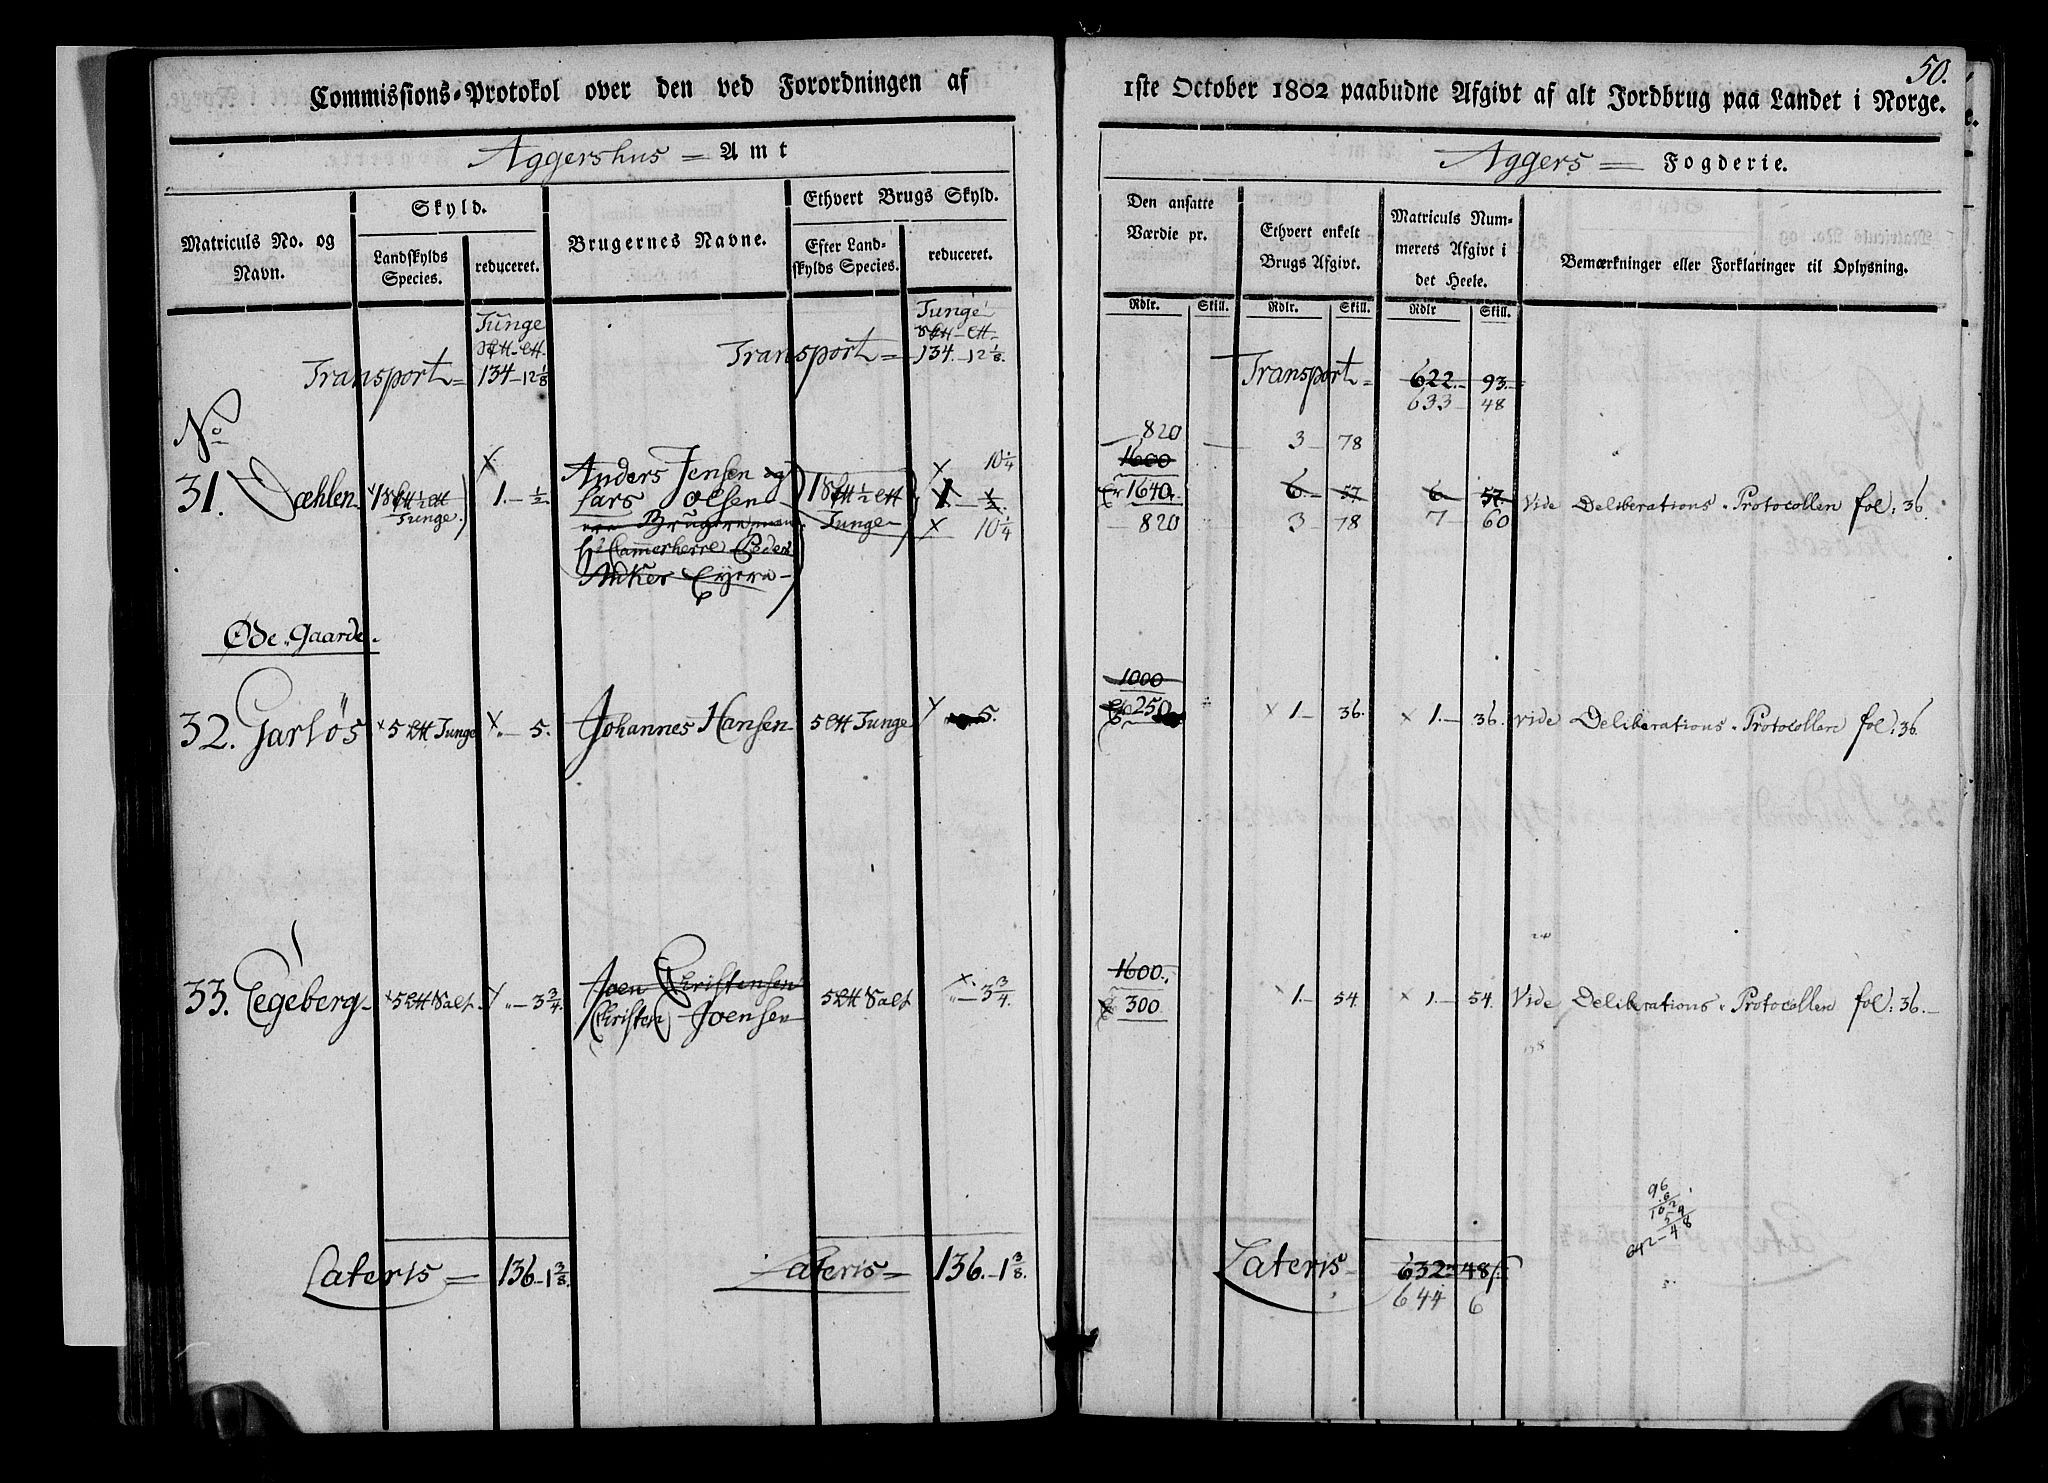 50.
Commissions-Protokol over den ved Forordningen af 1ste October 1802 paabudne Afgivt af alt Jordbrug paa Landet i Norge.
Aggershus = Amt
Aggers = Fogderie.
Matriculs No. og Navn.
Skyld.
Landskylds Species.
reduceret.
Brugernes Navne.
Ethvert Brugs Skyld.
Efter Landskylds Species.
reduceret.
Den ansatte Værdie pr.
Rdlr. Skill.
Ethvert enkelt Brugs Afgivt.
Rdlr. Skill.
Matriculs Nummerets Afgivt i det Heele.
Rdlr Skill.
Bemærkninger eller Forklaringer til Oplysning.
Tunge
Transport = 134 - 12 1/8
Tunge
Transport = 134 - 12 1/8.
Transport = 622 - 93
633 - 48
No
31. Dæhlen 1 1/2 Tunge. 1. - 1/2
Anders Jensen og
Lars Olsen
Brugere
Camerherre Peder
Ankers Eyere
1 1/2 Tunge
10 1/4
1 - 1/2
10 1/4
820
1600
1640
820
3 - 78
6 - 57
3 - 78
6 - 57
7 - 60
Vide Deliberations-Protocollen fol: 36.
Øde-Gaarde.
32. Garløs 5 Tunge - 5. Johannes Hansen 5 Tunge 5.
1000
250
1. - 36. 1. - 36. vide Deliberations-Protocollen fol: 36.
33. Egeberg 5 Salt - 3 3/4.
Joen Christensen
Christen Joensen
5 Salt - 3 3/4.
1600.
300
1. - 54. 1. - 54. Vide Deliberations-Protocollen fol: 36.
96
6
102
54
642 - 48
Lateris = 136 - 1 3/8.
Lateris = 136. - 1 3/8.
Lateris 632 - 48
644 6